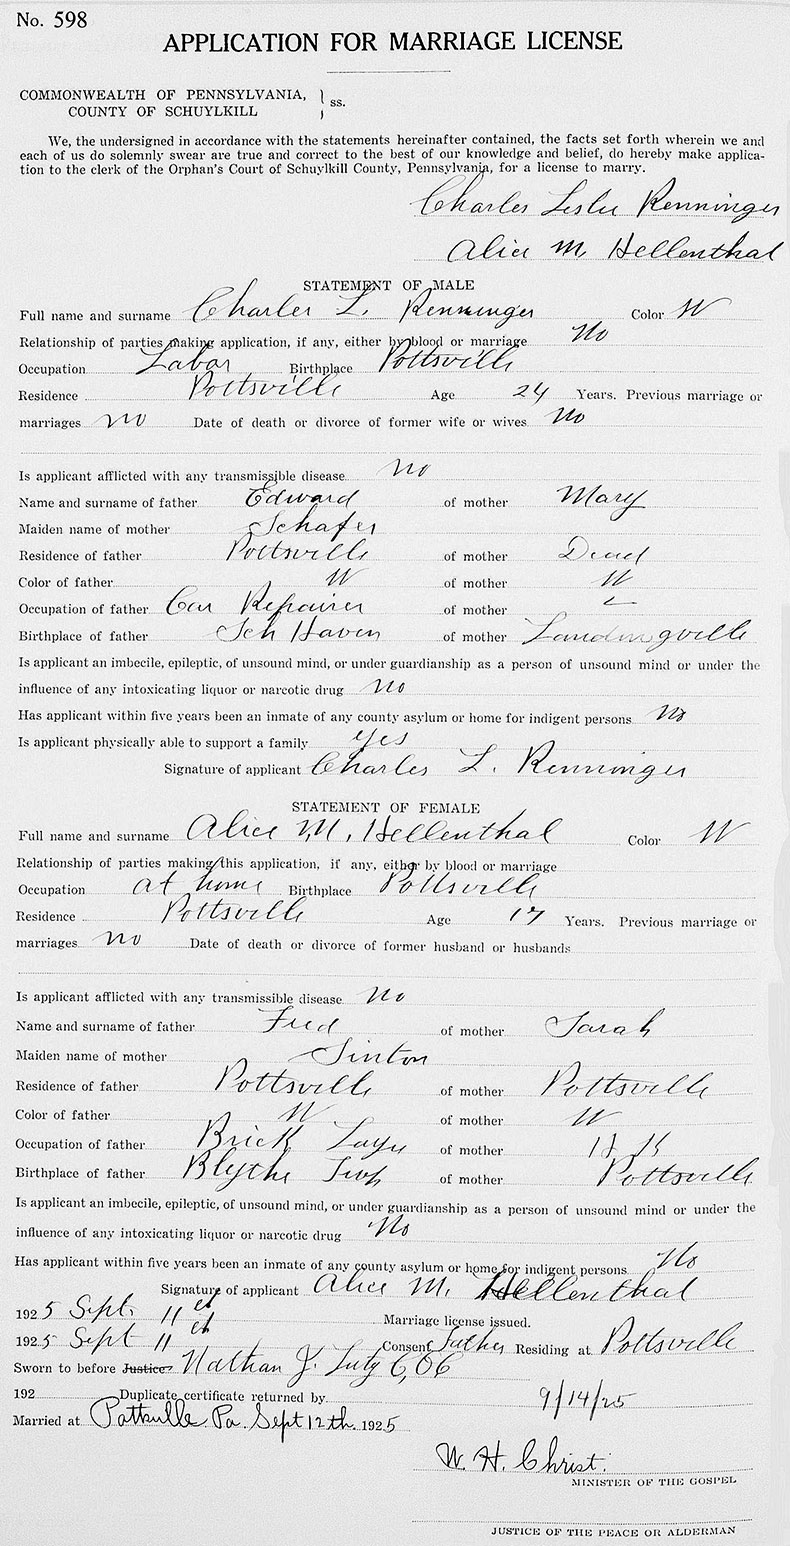 No. 598
APPLICATION FOR MARRIAGE LICENSE
COMMONWEALTH OF PENNSYLVANIA,
COUNTY OF SCHUYLKILL } ss.
We, the undersigned in accordance with the statements hereinafter contained, the facts set forth wherein we and
each of us do solemnly swear are true and correct to the best of our knowledge and belief, do hereby make applica-
tion to the clerk of the Orphan's Court of Schuylkill County, Pennsylvania, for a license to marry.
Charles Leslie Renninger
Alice M Hellenthal
STATEMENT OF MALE
Full name and surname Charles L. Renninger Color W
Relationship of parties making application, if any, either by blood or marriage No
Occupation Labor Birthplace Pottsville
Residence Pottsville Age 24 Years. Previous marriage or
marriages no Date of death or divorce of former wife or wives No
Is applicant afflicted with any transmissible disease no
Name and surname of father Edward of mother Mary
Maiden name of mother Schafer
Residence of father Pottsville of mother Dead
Color of father W of mother W
Occupation of father Car Repairer of mother
Birthplace of father Sch Haven of mother Landingville
Is applicant an imbecile, epileptic, of unsound mind, or under guardianship as a person of unsound mind or under the
influence of any intoxicating liquor or narcotic drug no
Has applicant within five years been an inmate of any county asylum or home for indigent persons no
Is applicant physically able to support a family yes
Signature of applicant Charles L. Renninger
STATEMENT OF FEMALE
Full name and surname Alice M. Hellenthal Color W
Relationship of parties making this application, if any, either by blood or marriage
Occupation at home Birthplace Pottsville
Residence Pottsville Age Years. Previous marriage or
marriages no Date of death or divorce of former husband or husbands
Is applicant afflicted with any transmissible disease no
Name and surname of father Fred of mother Sarah
Maiden name of mother Sinton
Residence of father Pottsville of mother Pottsville
Color of father W of mother W
Occupation of father Brick Layer of mother H K
Birthplace of father Blythe Twp of mother Pottsville
Is applicant an imbecile, epileptic, of unsound mind, or under guardianship as a person of unsound mind or under the
influence of any intoxicating liquor or narcotic drug No
Has applicant within five years been an inmate of any county asylum or home for indigent persons No
Signature of applicant Alice M. Hellenthal
1925 Sept. 11 Marriage license issued.
1925 Sept 11 Consent Father Residing at Pottsville
Sworn to before Justice Nathan J.
192 Duplicate certificate returned by 9/14/25
Married at Pottsville Pa. Sept 12th. 1925
W. H. Christ.
MINISTER OF THE GOSPEL
JUSTICE OF THE PEACE OR ALDERMAN